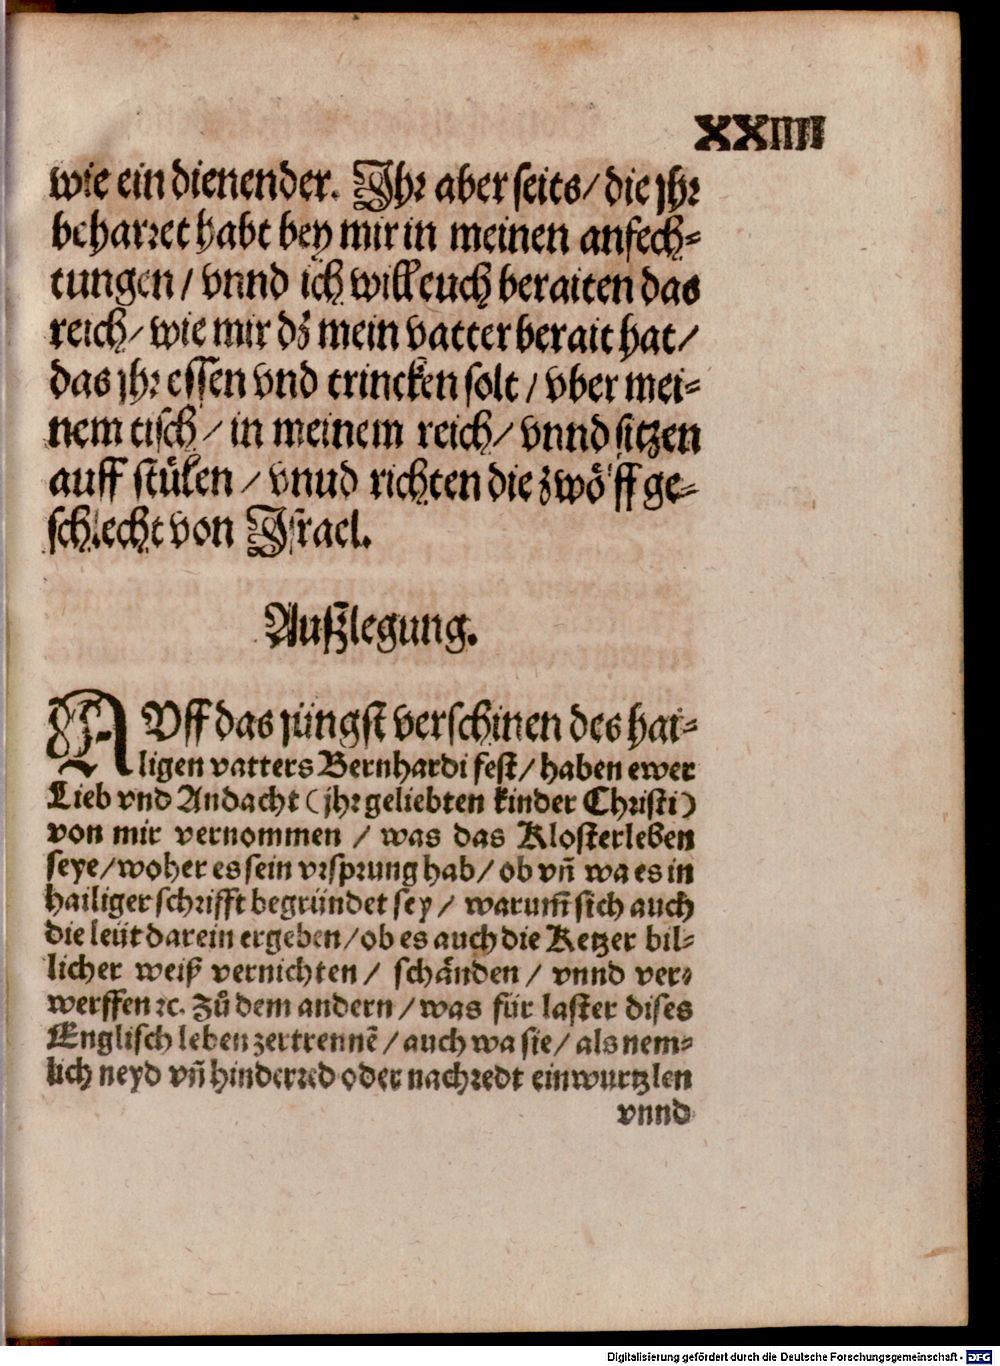 XXIIII
wie ein dienender. Jhr aber seits/ die jhr
beharret habt bey mir in meinen anfech⸗
tungen/ vnnd ich will euch beraiten das
reich/ wie mir dz mein vatter berait hat/
das jhr essen vnd trincken solt/ vber mei⸗
nem tisch/ in meinem reich/ vnnd sitzen
auff stülen/ vnud richten die zwölff ge⸗
schlecht von Jsrael.
Außlegung.
AVff das jüngst verschinen des hai⸗
ligen vatters Bernhardi fest/ haben ewer
Lieb vnd Andacht (jhr geliebten kinder Christi)
von mir vernommen/ was das Klosterleben
seye/ woher es sein vrsprung hab/ ob vñ wa es in
hailiger schrifft begründet sey/ warum̃ sich auch
die leüt darein ergeben/ ob es auch die Ketzer bil⸗
licher weiß vernichten/ schänden/ vnnd ver⸗
werffen ꝛc. Zů dem andern/ was für laster dises
Englisch leben zertrennẽ/ auch wa sie/ als nem⸗
lich neyd vñ hinderred oder nachredt einwurtzlen
vnnd
Digitalisierung gefördert durch die Deutsche Forschungsgemeinschaft - DFG